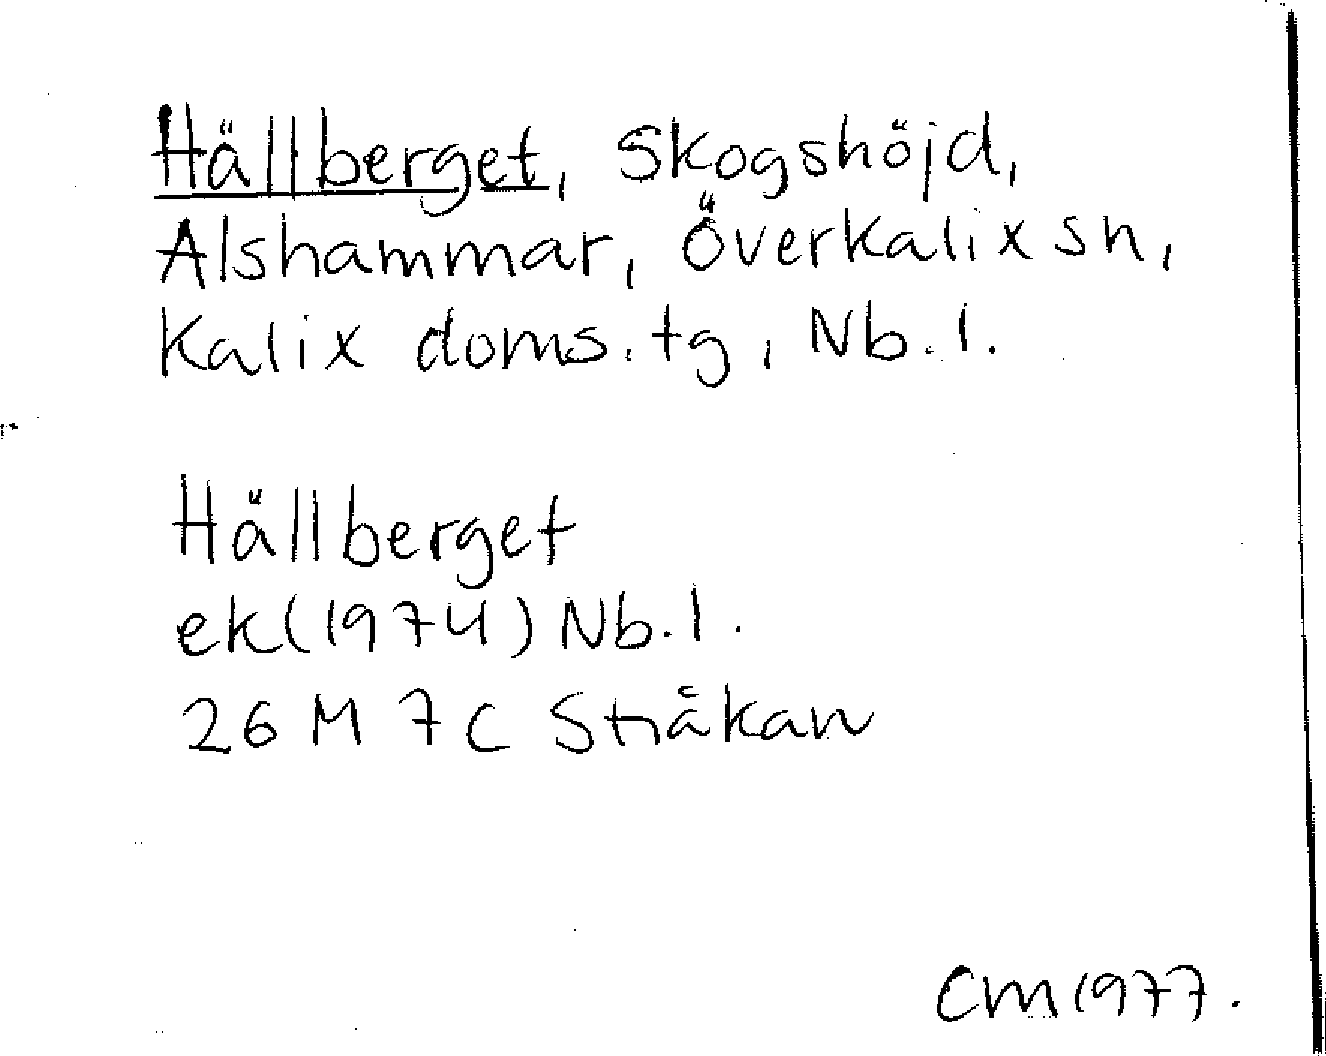 Hällberget, Skogshöjd,
Alshammar, Överkalix sn,
Kalix doms. tg, Nb. l.
Hällberget
ek (1974) Nb. l.
26 M 7 C Stråkan
CM 1977.